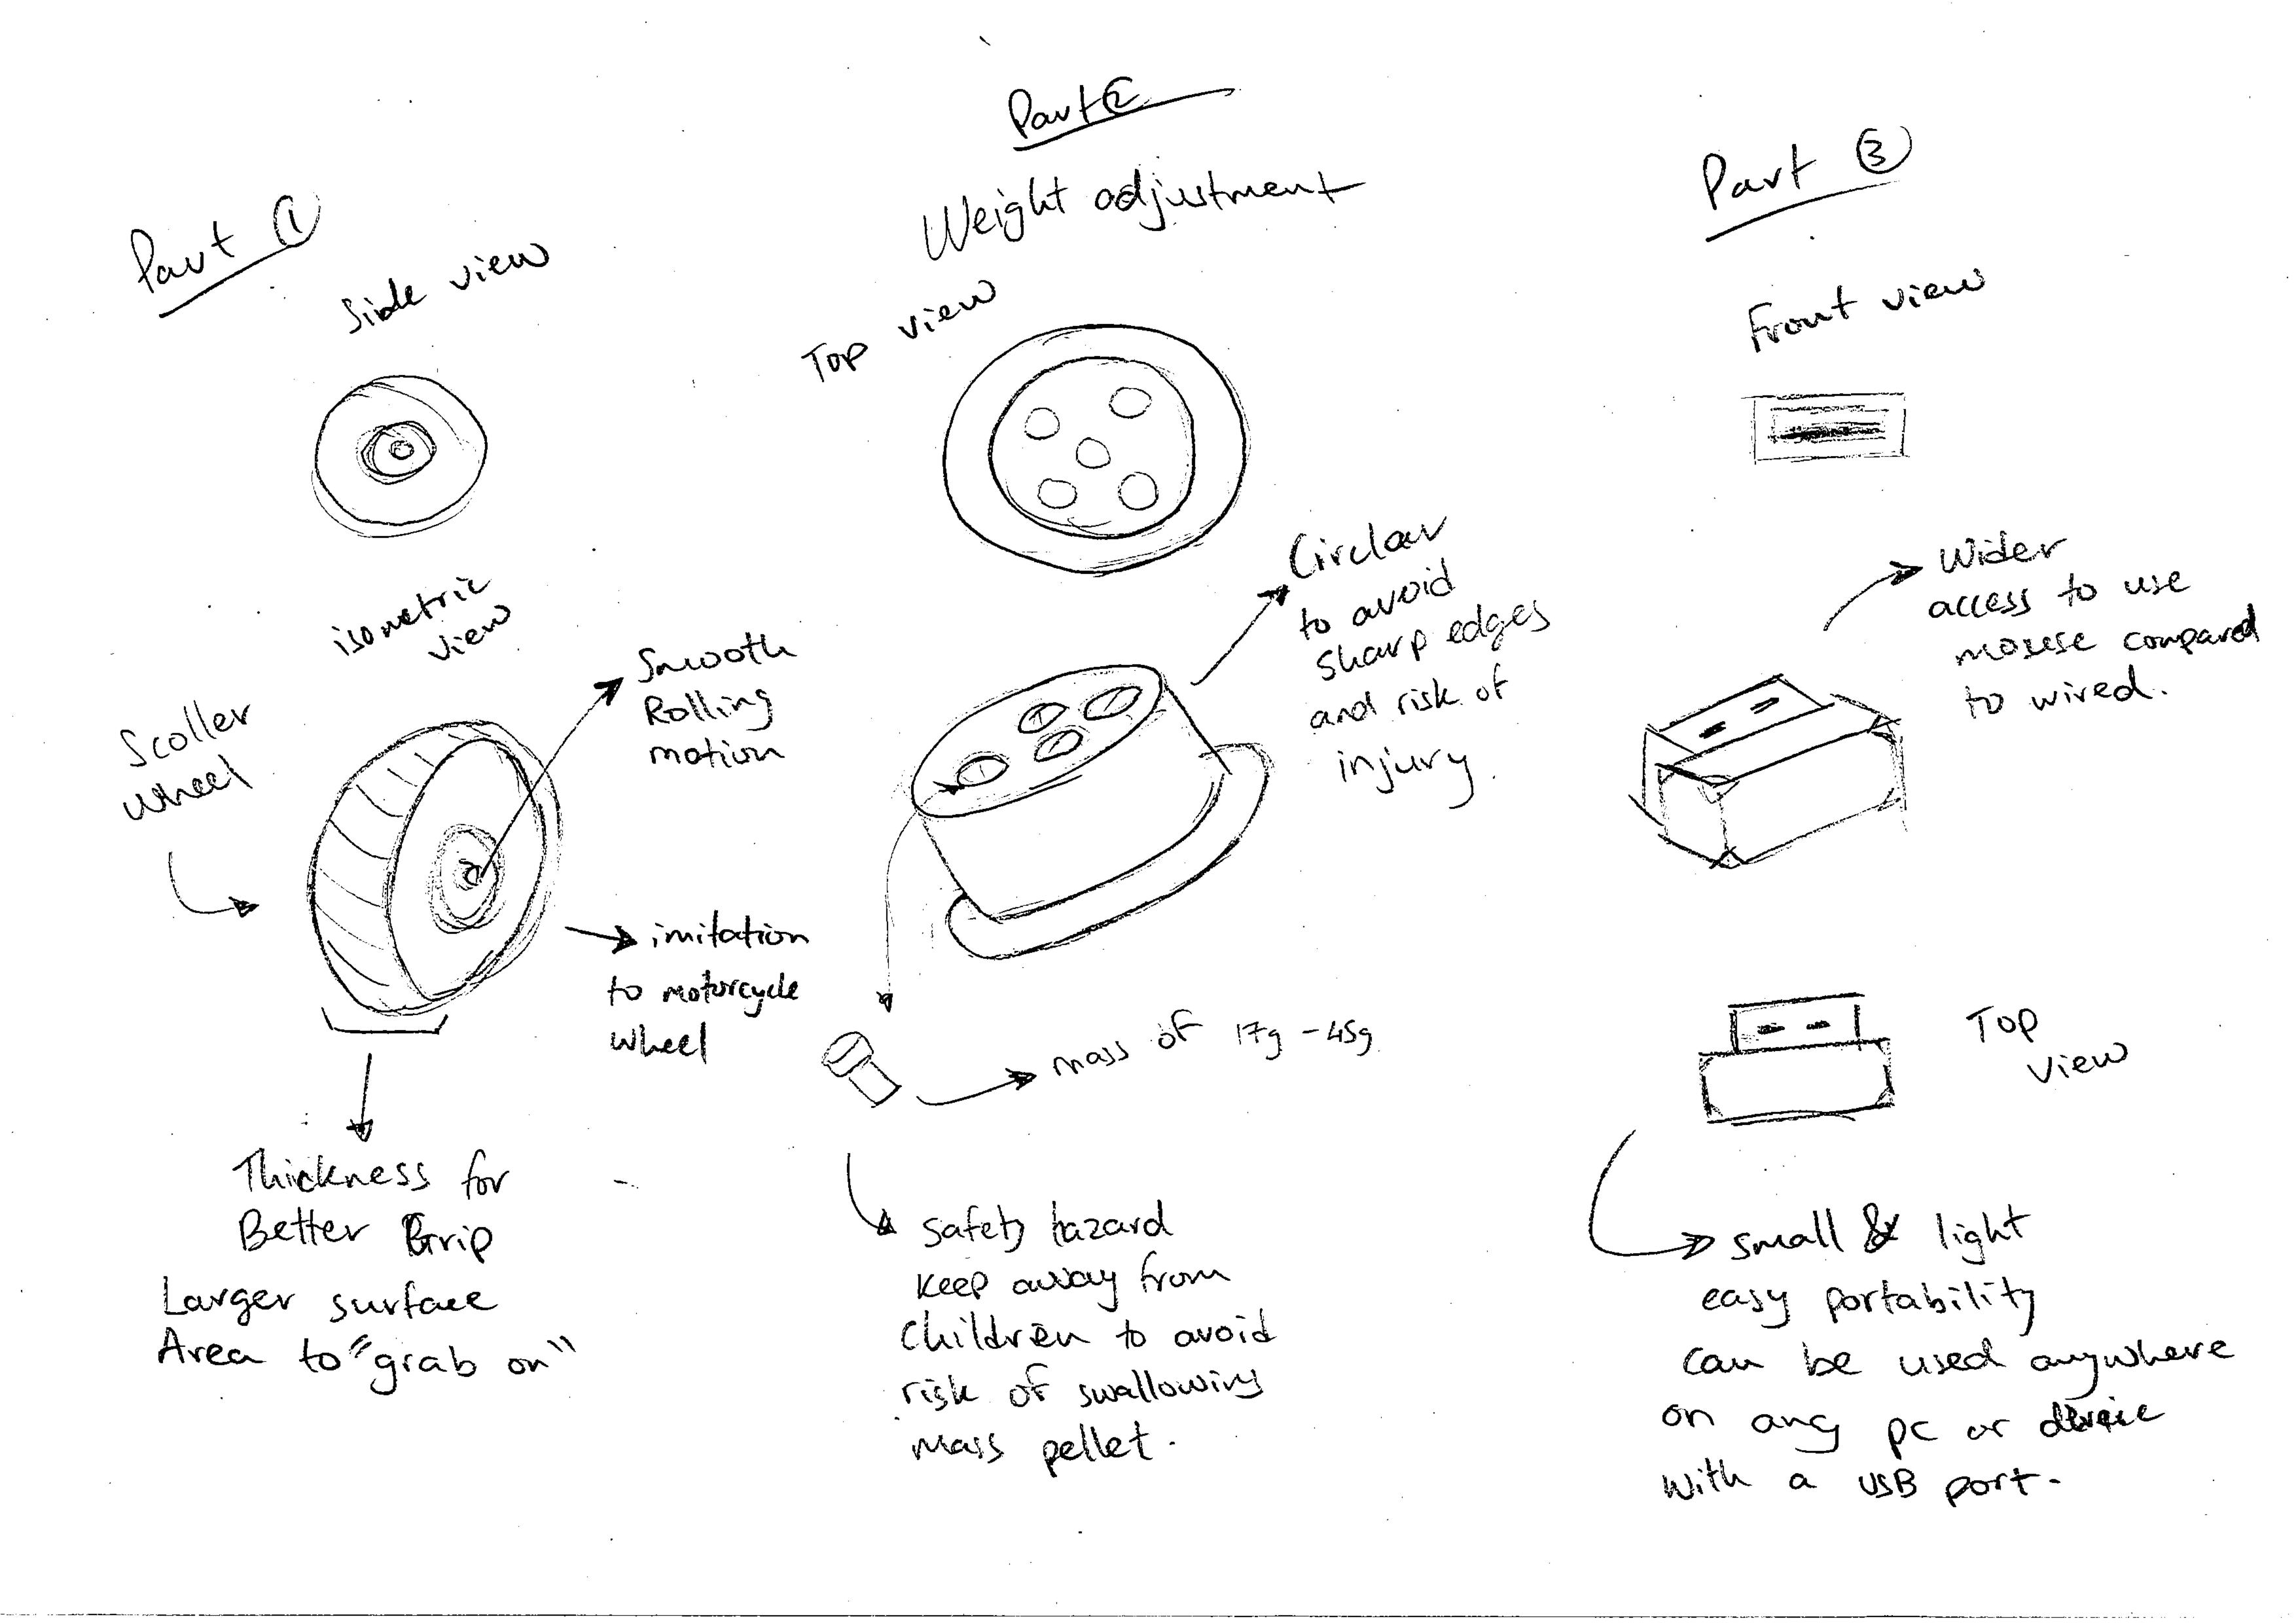 Part ①
Side view
isometric
view
Scoller
wheel
Smooth
Rolling
motion
imitation
to motorcycle
wheel
Thickness for
Better Grip
Larger surface
Area to "grab on"
Part ②
Weight adjustment
Top view
Circlar
to avoid
sharp edges
and risk of
injury.
mass of 17g - 45g
Safety hazard
Keep away from
Children to avoid
risk of swallowing
mass pellet.
Part ③
Front view
Wider
access to use
mouse compared
to wired.
Top
view
small & light
easy portability
can be used anywhere
on any pc or device
with a USB port.